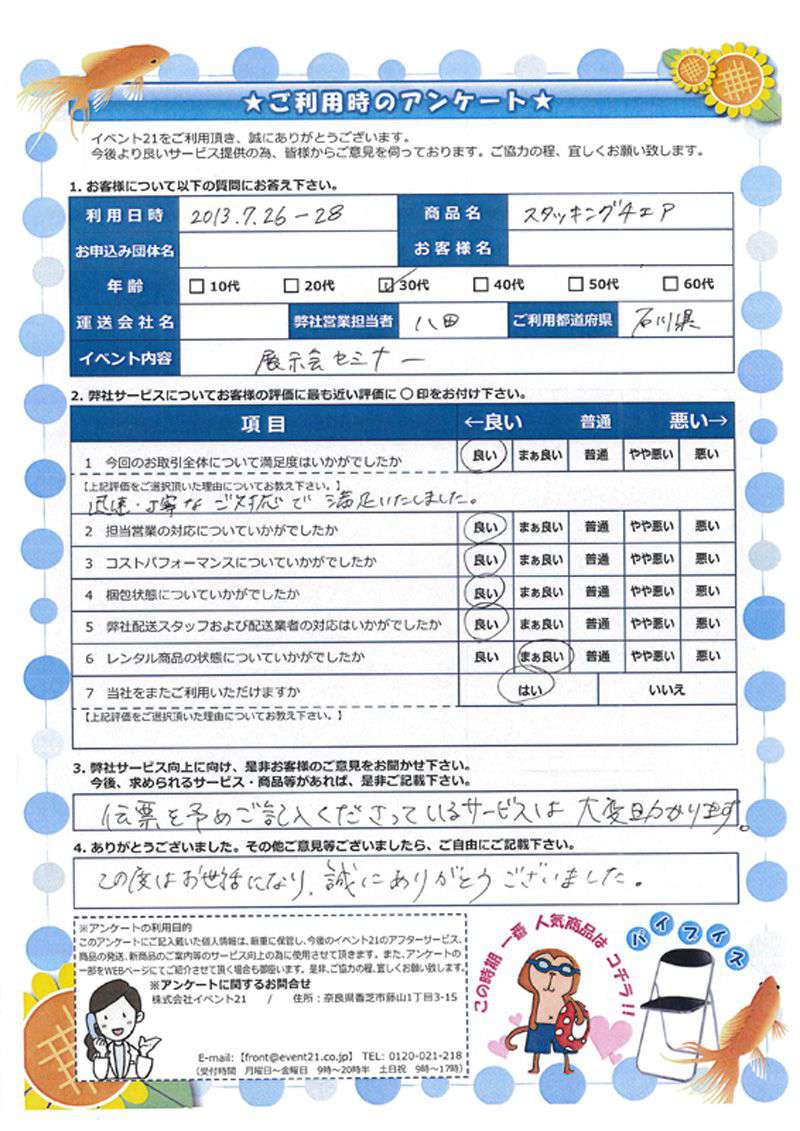 ★ご利用時のアンケート★
イベント21をご利用頂き、誠にありがとうございます。
今後より良いサービス提供の為、皆様からご意見を伺っております。ご協力の程、宜しくお願い致します。
1. お客様について以下の質問にお答え下さい。
利用日時 2013.7.26-28 商品名 スタッキングチェア
お申込み団体名 お客様名
年齢 □10代 □20代 ☑30代 □40代 □50代 □60代
運送会社名 弊社営業担当者 八田 ご利用都道府県 石川県
イベント内容 展示会セミナー
2. 弊社サービスについてお客様の評価に最も近い評価に○印をお付け下さい。
項目 ←良い 普通 悪い→
1 今回のお取引全体について満足度はいかがでしたか 良い まぁ良い 普通 やや悪い 悪い
【上記評価をご選択頂いた理由についてお教え下さい。】
迅速・丁寧なご対応で満足いたしました。
2 担当営業の対応についていかがでしたか 良い まぁ良い 普通 やや悪い 悪い
3 コストパフォーマンスについていかがでしたか 良い まぁ良い 普通 やや悪い 悪い
4 梱包状態についていかがでしたか 良い まぁ良い 普通 やや悪い 悪い
5 弊社配送スタッフおよび配送業者の対応はいかがでしたか 良い まぁ良い 普通 やや悪い 悪い
6 レンタル商品の状態についていかがでしたか 良い まぁ良い 普通 やや悪い 悪い
7 当社をまたご利用いただけますか はい いいえ
【上記評価をご選択頂いた理由についてお教え下さい。】
3. 弊社サービス向上に向け、是非お客様のご意見をお聞かせ下さい。
今後、求められるサービス・商品等があれば、是非ご記載下さい。
伝票を予めご記入くださっているサービスは大変助かります。
4. ありがとうございました。その他ご意見等ございましたら、ご自由にご記載下さい。
この度はお世話になり、誠にありがとうございました。
※アンケートの利用目的
このアンケートにご記入戴いた個人情報は、厳重に保管し、今後のイベント21のアフターサービス、
商品の発送、新商品のご案内等のサービス向上の為に使用させて頂きます。また、アンケートの
一部をWEBページにてご紹介させて頂く場合も御座います。是非、ご協力の程、宜しくお願い致します。
※アンケートに関するお問合せ
株式会社イベント21 / 住所：奈良県香芝市藤山1丁目3-15
E-mail:【front@event21.co.jp】 TEL: 0120-021-218
（受付時間 月曜日～金曜日 9時～20時半 土日祝 9時～17時）
この時期 一番 人気商品は コチラ!!
パイプイス